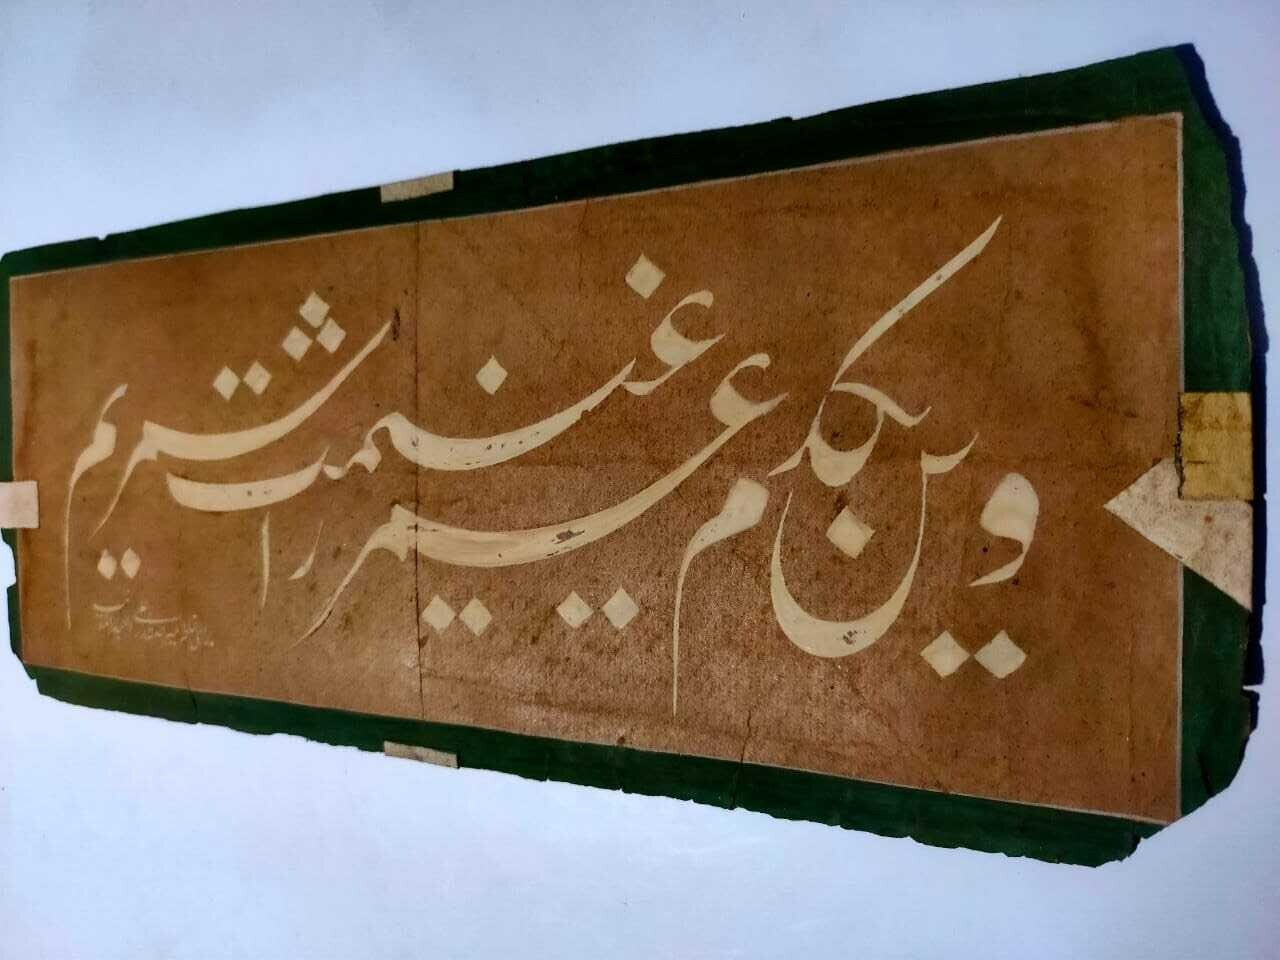 وین یکدم عمر را غنیمت شمریم